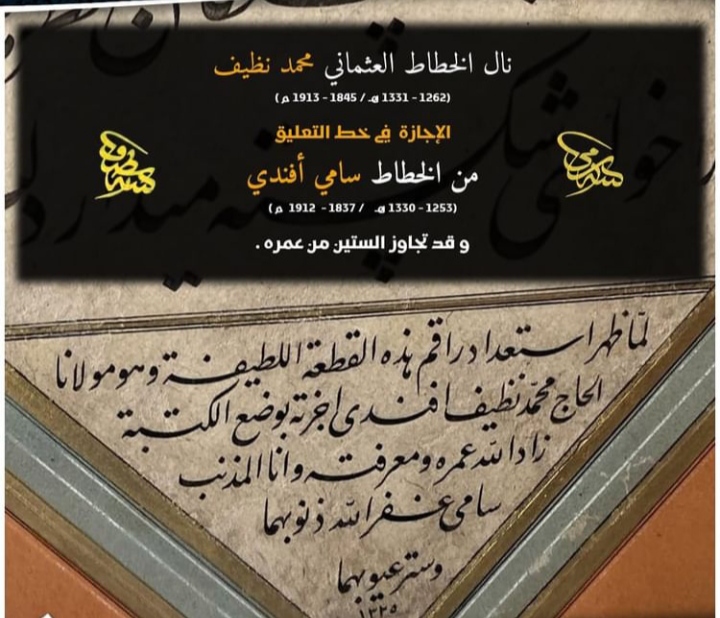 نال الخطاط العثماني محمد نظيف
(1262 - 1331 هـ / 1845 - 1913 م)
الإجازة في خط التعليق
من الخطاط سامي أفندي
(1253 - 1330 هـ / 1837 - 1912 م)
و قد تجاوز الستين من عمره .
لما ظهر استعداد راقم هذه القطعة اللطيفة وهو مولانا
الحاج محمد نظيف افندى اجزته بوضع الكتبة
زاد الله عمره ومعرفته وانا المذنب
سامى غفر الله ذنوبهما
وستر عيوبهما
١٣٢٥